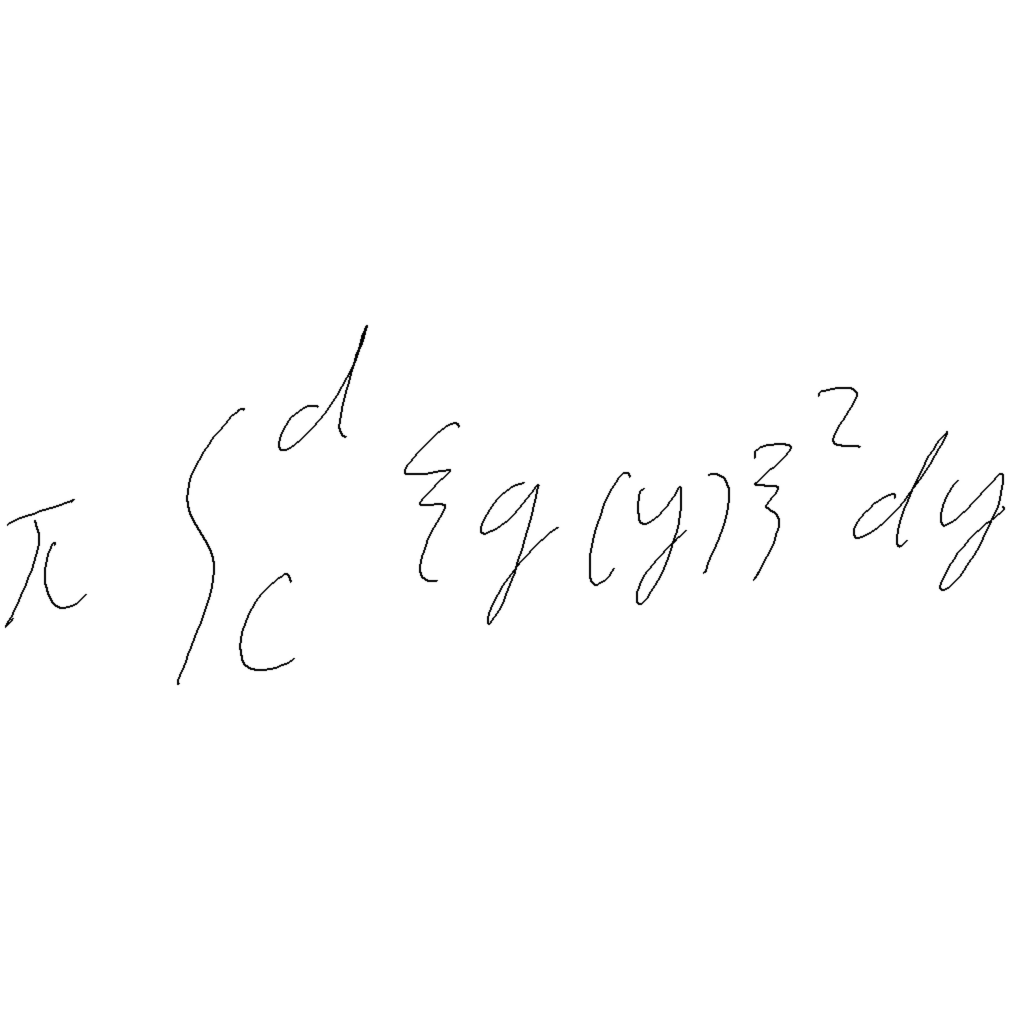 \pi \int_{c}^{d} \{g(y)\}^{2} dy